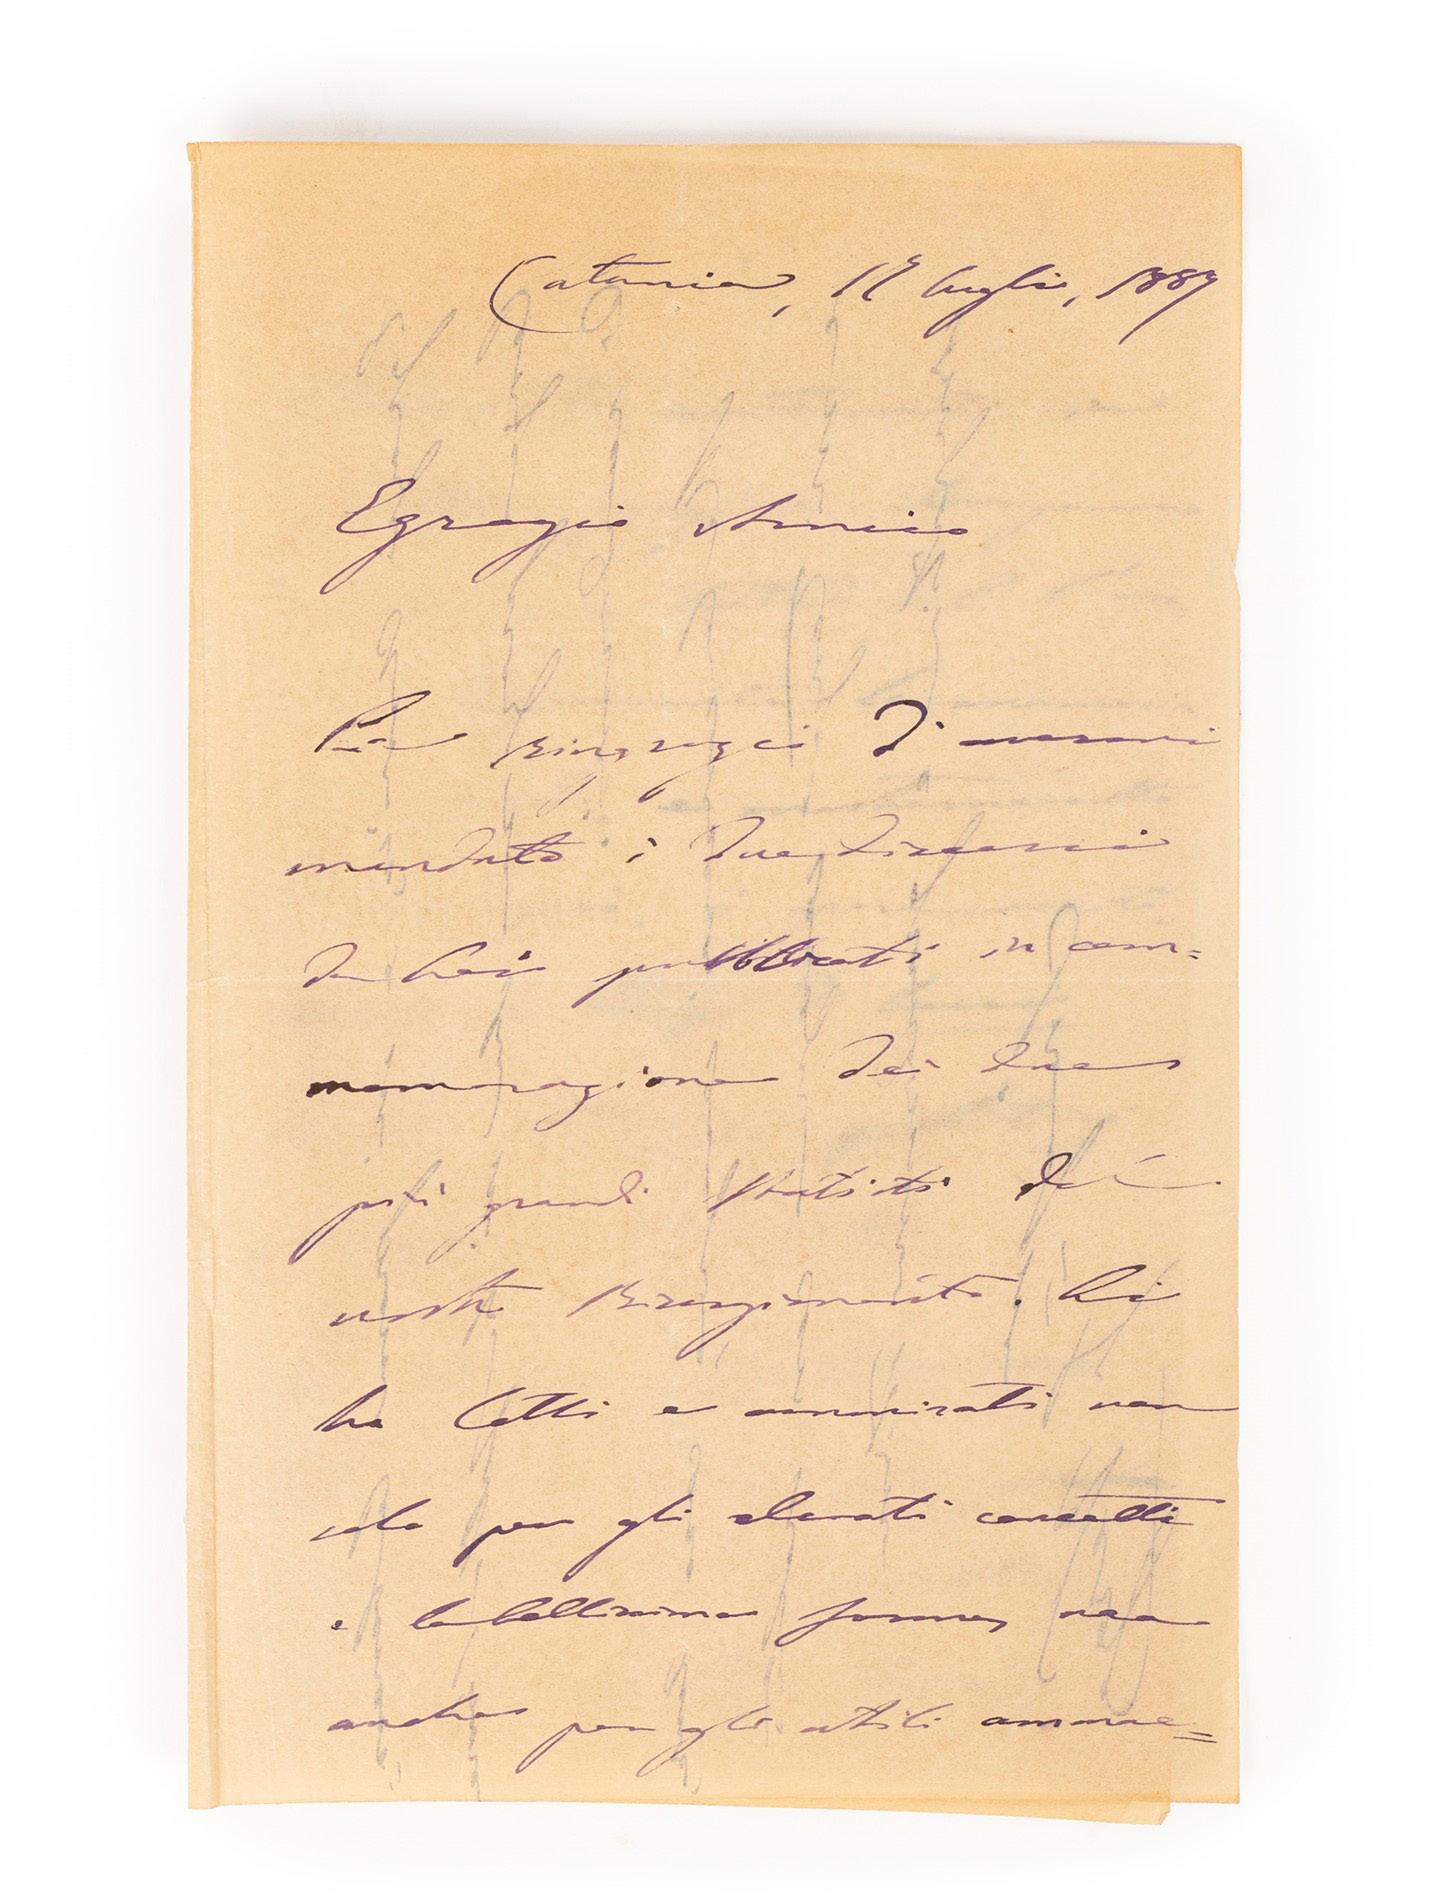 Catania, 12 luglio, 1887
Egregio Amico
La ringrazio d'avermi
mandato i due discorsi
da Lei pubblicati in com=
memorazione dei due
più grandi statisti del
nostro Risorgimento. Li
ho letti e ammirati non
solo per gli elevati concetti
e la bellissima forma, ma
anche per gli utili ammae=